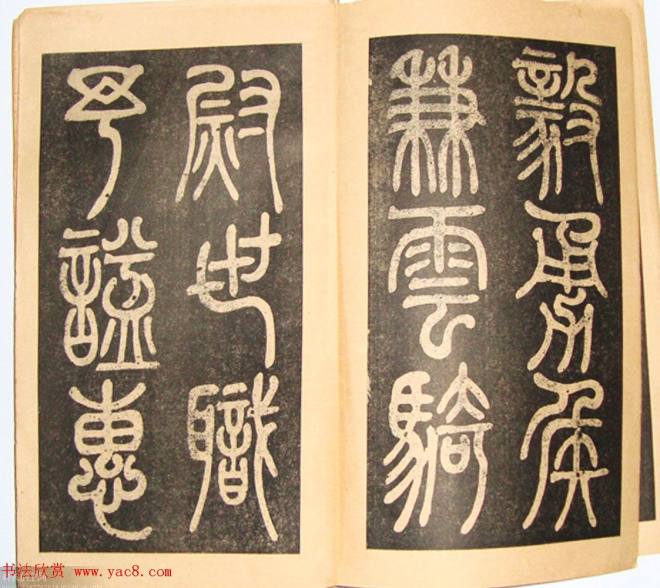 毅勇侯
兼雲騎
尉世職
予諡惠
书法欣赏 www.yac8.com